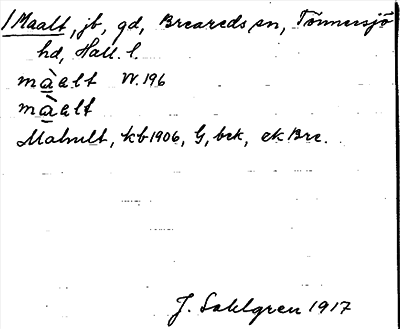 1 Maalt, jb, gd, Breareds sn, Tönnersjö
hd, Hall. l.
màalt W. 196
màalt
Mahult, kb 1906, G, bek, ek Bre.
J. Sahlgren 1917